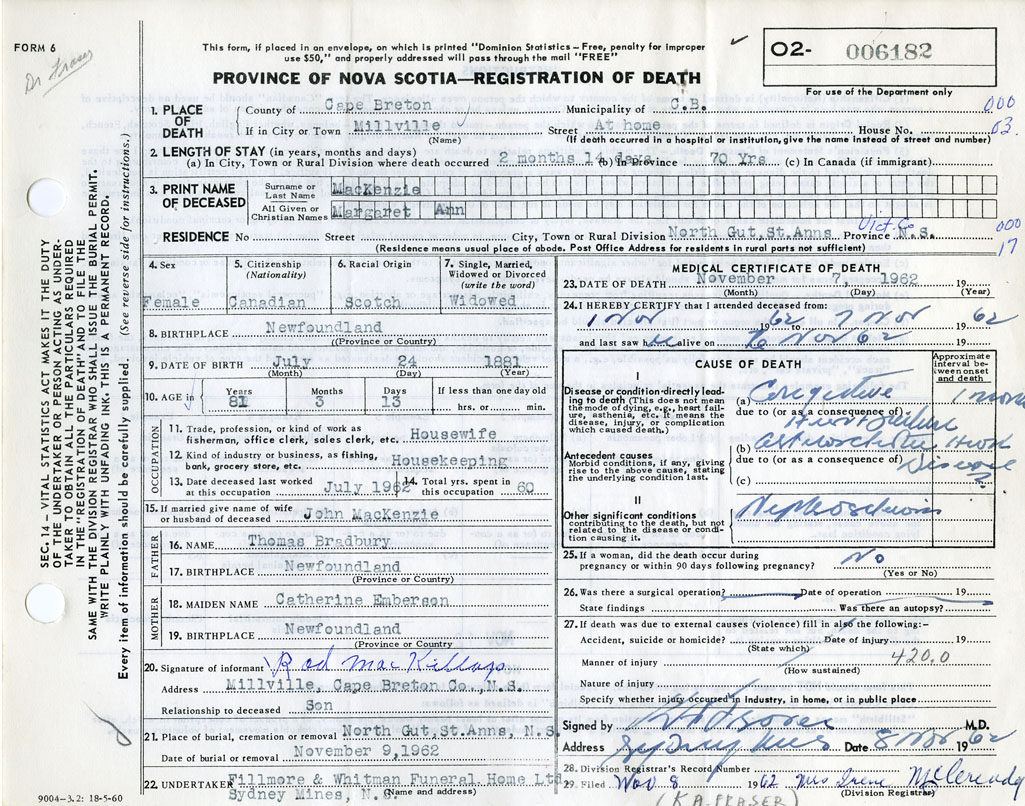 FORM 6
Dr Fraser
This form, if placed in an envelope, on which is printed "Dominion Statistics—Free, penalty for improper
use $50," and properly addressed will pass through the mail "FREE"
PROVINCE OF NOVA SCOTIA—REGISTRATION OF DEATH
O2- 006182
For use of the Department only
1. PLACE OF DEATH
County of Cape Breton Municipality of C.B. 000
If in City or Town Millville Street At home House No. 03
(Name) (If death occurred in a hospital or institution, give the name instead of street and number)
2. LENGTH OF STAY (in years, months and days)
(a) In City, Town or Rural Division where death occurred 2 months 14 days (b) In Province 70 Yrs (c) In Canada (if immigrant)
3. PRINT NAME OF DECEASED
Surname or Last Name MacKenzie
All Given or Christian Names Margaret Ann
Vict. Co 000
RESIDENCE No Street City, Town or Rural Division North Gut, St.Anns Province N.S. 17
(Residence means usual place of abode. Post Office Address for residents in rural parts not sufficient)
4. Sex 5. Citizenship (Nationality) 6. Racial Origin 7. Single, Married, Widowed or Divorced (write the word)
Female Canadian Scotch Widowed
8. BIRTHPLACE Newfoundland
(Province or Country)
9. DATE OF BIRTH July 24 1881
(Month) (Day) (Year)
10. AGE in Years 81 Months 3 Days 13 If less than one day old hrs. or min.
OCCUPATION
11. Trade, profession, or kind of work as
fisherman, office clerk, sales clerk, etc. Housewife
12. Kind of industry or business, as fishing,
bank, grocery store, etc. Housekeeping
13. Date deceased last worked at this occupation July 1962 14. Total yrs. spent in this occupation 60
15. If married give name of wife
or husband of deceased John MacKenzie
FATHER
16. NAME Thomas Bradbury
17. BIRTHPLACE Newfoundland
(Province or Country)
MOTHER
18. MAIDEN NAME Catherine Emberson
19. BIRTHPLACE Newfoundland
(Province or Country)
20. Signature of informant Rod MacKillop
Address Millville, Cape Breton Co., N.S.
Relationship to deceased Son
21. Place of burial, cremation or removal North Gut, St.Anns, N.S.
Date of burial or removal November 9, 1962
22. UNDERTAKER Fillmore & Whitman Funeral Home Ltd
Sydney Mines, N.S. (Name and address)
9004-3.2: 18-5-60
MEDICAL CERTIFICATE OF DEATH
23. DATE OF DEATH November 7, 1962 19
(Month) (Day) (Year)
24. I HEREBY CERTIFY that I attended deceased from:
1 Nov 1962 to 7 Nov 1962
and last saw her alive on 6 Nov 62 19
CAUSE OF DEATH
Approximate interval between onset and death
I
Disease or condition directly leading to death (This does not mean the mode of dying, e.g., heart failure, asthenia, etc. It means the disease, injury, or complication which caused death.)
(a) Congestive 1 mon
due to (or as a consequence of)
Heart failure
(b) arteriosclerotic Heart
Antecedent causes
Morbid conditions, if any, giving rise to the above cause, stating the underlying condition last.
due to (or as a consequence of) Disease
(c) ?
II
Other significant conditions
contributing to the death, but not related to the disease or condition causing it.
Nephrosclerosis
25. If a woman, did the death occur during
pregnancy or within 90 days following pregnancy? No
(Yes or No)
26. Was there a surgical operation? Date of operation 19
State findings Was there an autopsy?
27. If death was due to external causes (violence) fill in also the following:-
Accident, suicide or homicide? Date of injury 19
(State which)
Manner of injury 420.0
(How sustained)
Nature of injury
Specify whether injury occurred in industry, in home, or in public place
Signed by M.D.
Address Sydney Mines Date 8 Nov 1962
28. Division Registrar's Record Number
29. Filed Nov 8 1962 Mrs Irene
(Division Registrar)
(K.A. FRASER)
SEC. 14—VITAL STATISTICS ACT MAKES IT THE DUTY
OF THE UNDERTAKER OR PERSON ACTING AS UNDER-
TAKER TO OBTAIN ALL THE PARTICULARS REQUIRED
IN THE "REGISTRATION OF DEATH" AND TO FILE THE
SAME WITH THE DIVISION REGISTRAR WHO SHALL ISSUE THE BURIAL PERMIT.
WRITE PLAINLY WITH UNFADING INK. THIS IS A PERMANENT RECORD.
Every item of information should be carefully supplied. (See reverse side for instructions.)